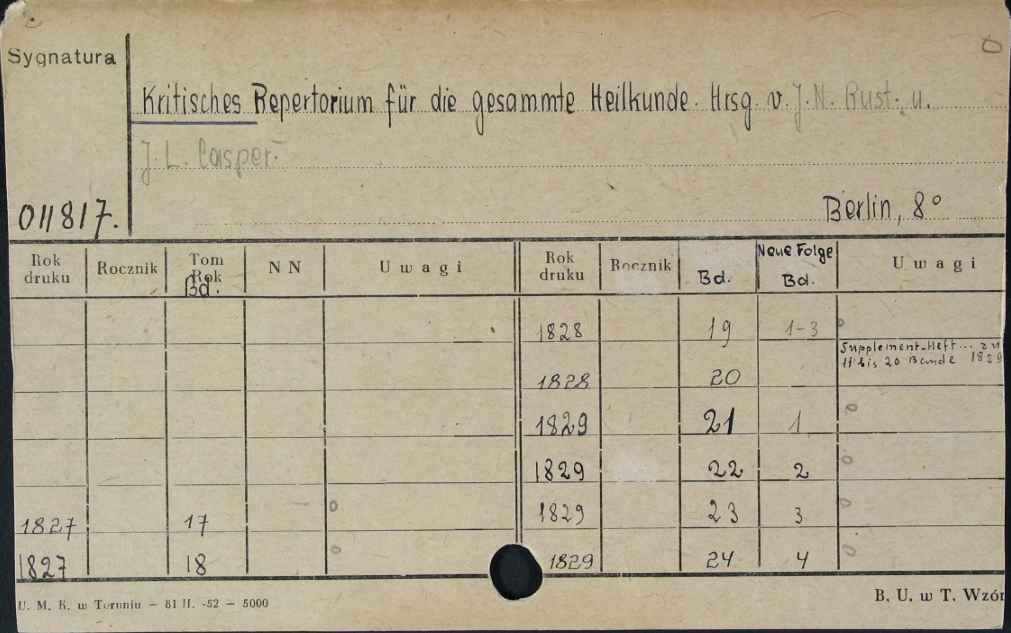 Sygnatura
Kritisches Repertorium für die gesammte Heilkunde. Hrsg. v. J. N. Rust. u.
J. L. Casper.
011817.
Berlin, 8°
Rok druku Rocznik Tom Rok Bd. N N Uwagi Rok druku Rocznik Bd. Neue Folge Bd. Uwagi
1828 19 1-3
Supplement-Heft... zu
11 bis 20 Bande 1829
1828 20
1829 21 1
1829 22 2
1827 17 1829 23 3
1827 18 1829 24 4
U. M. K. w Toruniu — 81 II. -52 — 5000
B. U. w T. Wzór